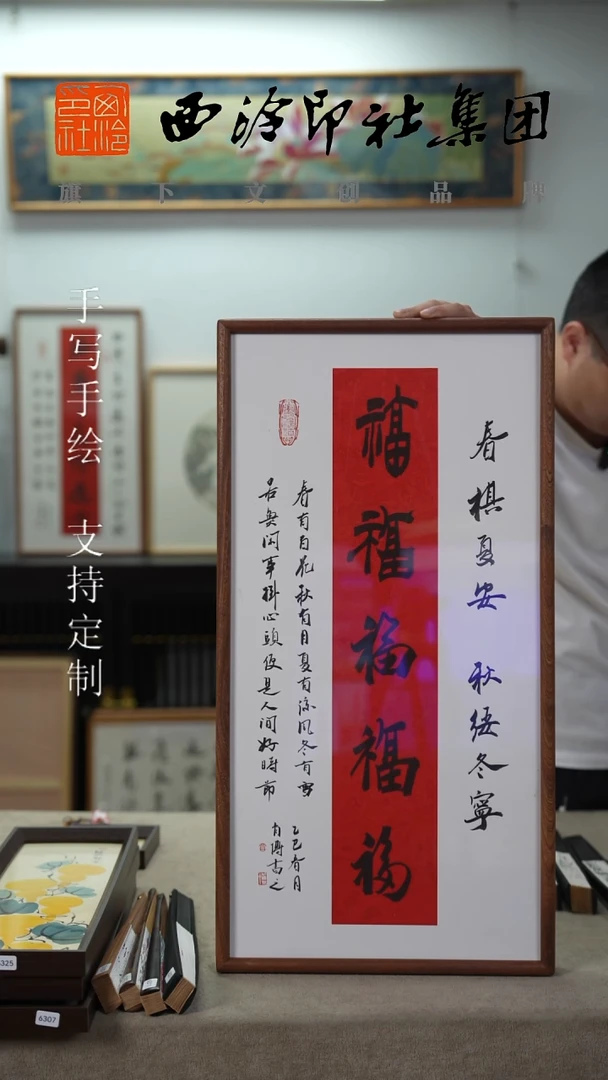 西泠印社
西泠印社集团
旗下文创品牌
手写手绘 支持定制
春祺夏安 秋綏冬寧
福
福
福
福
福
春有百花秋有月夏有凉风冬有雪
若無闲事掛心頭便是人间好時節
乙巳春月
书之
6325
6307